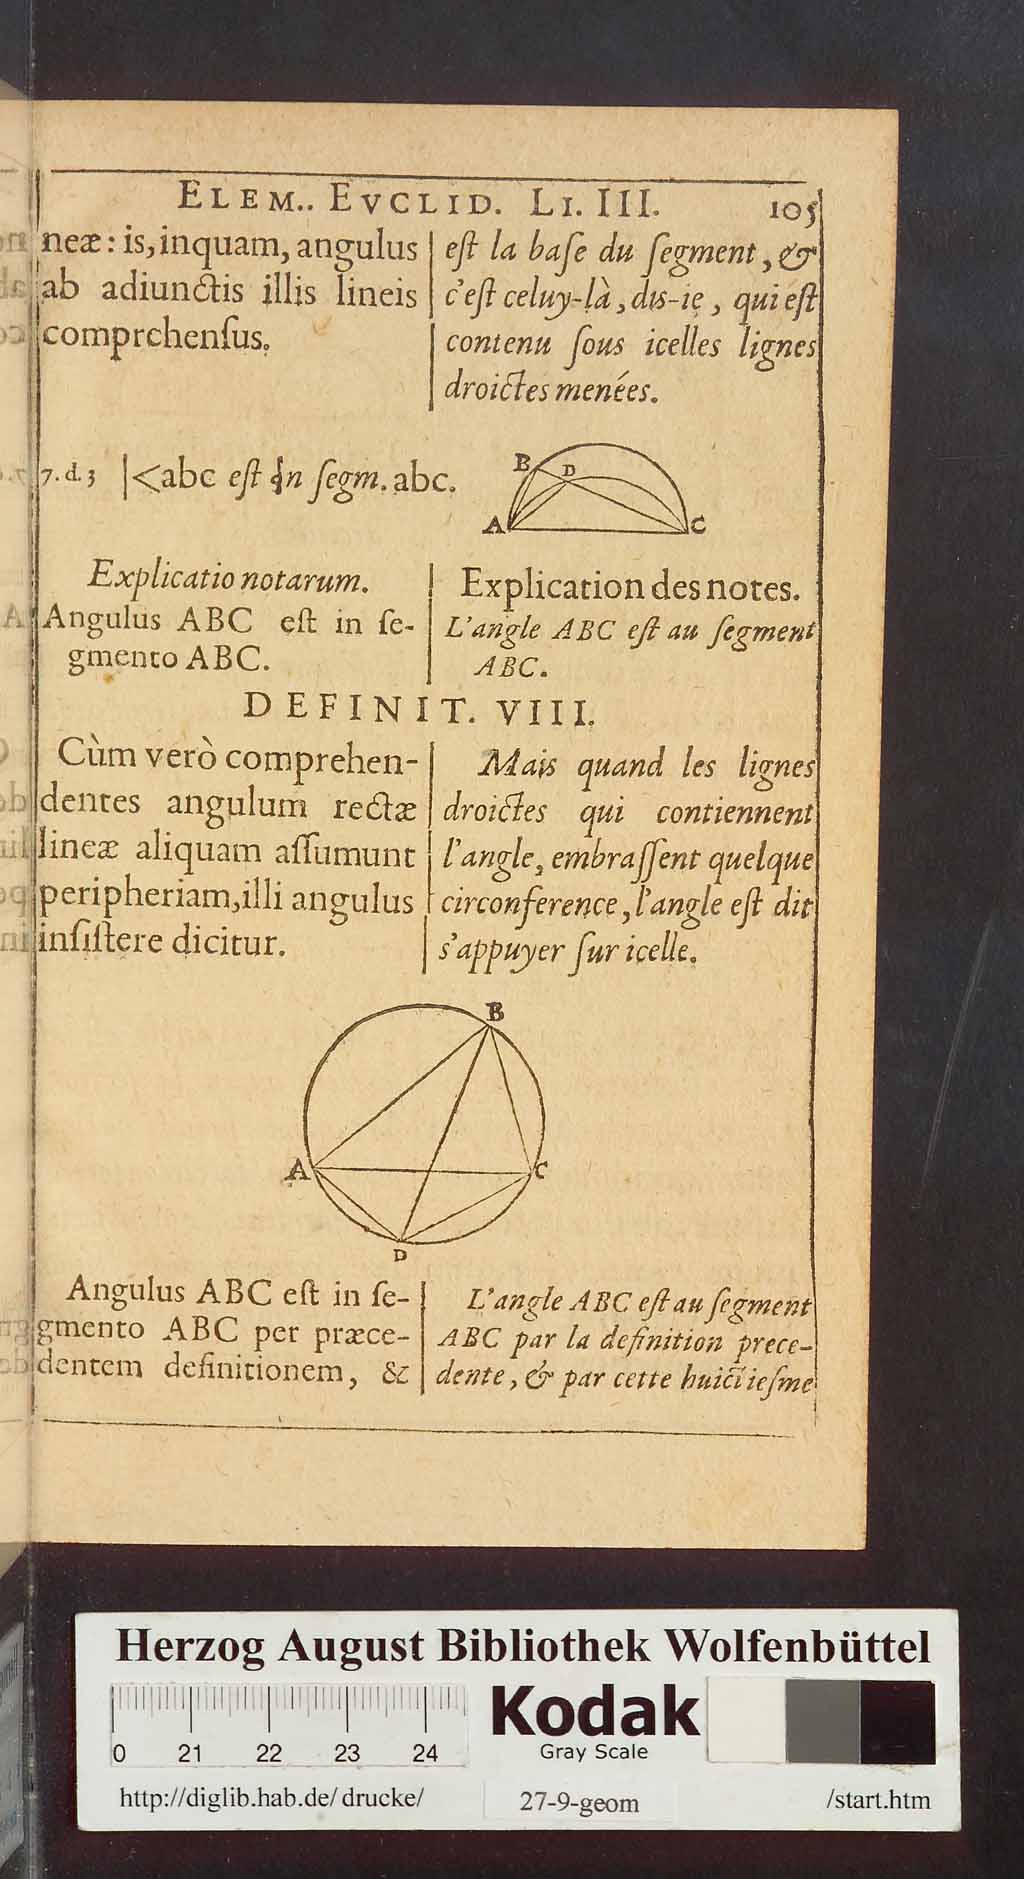 ELEM.. EVCLID. LI. III. 105
neæ: is, inquam, angulus
ab adiunctis illis lineis
comprehenſus.
eſt la baſe du ſegment, &
c'eſt celuy-là, dis-ie, qui eſt
contenu ſous icelles lignes
droictes menées.
7. d. 3 | <abc eſt in ſegm. abc.
B D
A C
Explicatio notarum.
Angulus ABC eſt in ſe-
gmento ABC.
Explication des notes.
L'angle ABC eſt au ſegment
ABC.
DEFINIT. VIII.
Cùm verò comprehen-
dentes angulum rectæ
lineæ aliquam aſſumunt
peripheriam, illi angulus
inſiſtere dicitur.
Mais quand les lignes
droictes qui contiennent
l'angle, embraſſent quelque
circonference, l'angle eſt dit
s'appuyer ſur icelle.
B
A C
D
Angulus ABC eſt in ſe-
gmento ABC per præce-
dentem definitionem, &
L'angle ABC eſt au ſegment
ABC par la definition prece-
dente, & par cette huictieſme
Herzog August Bibliothek Wolfenbüttel
0 21 22 23 24
Kodak
Gray Scale
http://diglib.hab.de/ drucke/ 27-9-geom /start.htm